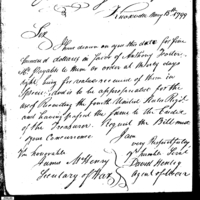 Knoxville May 13th 1799
Sir
I have drawn on you this date for four
hundred dollars in favor of Anthony Foster
payable to them or order at thirty days
sight, being for value received of them in
Specie, and to be appropriated for the
use of Recruiting the fourth United States Regt.
and having passed the same to the Credit
of the Treasurer. Request the Bill meet
your Concurrence
I am
very Respectfully
yr humble Servt
David Henley
Agent of War
The honorable
James McHenry
Secretary of War